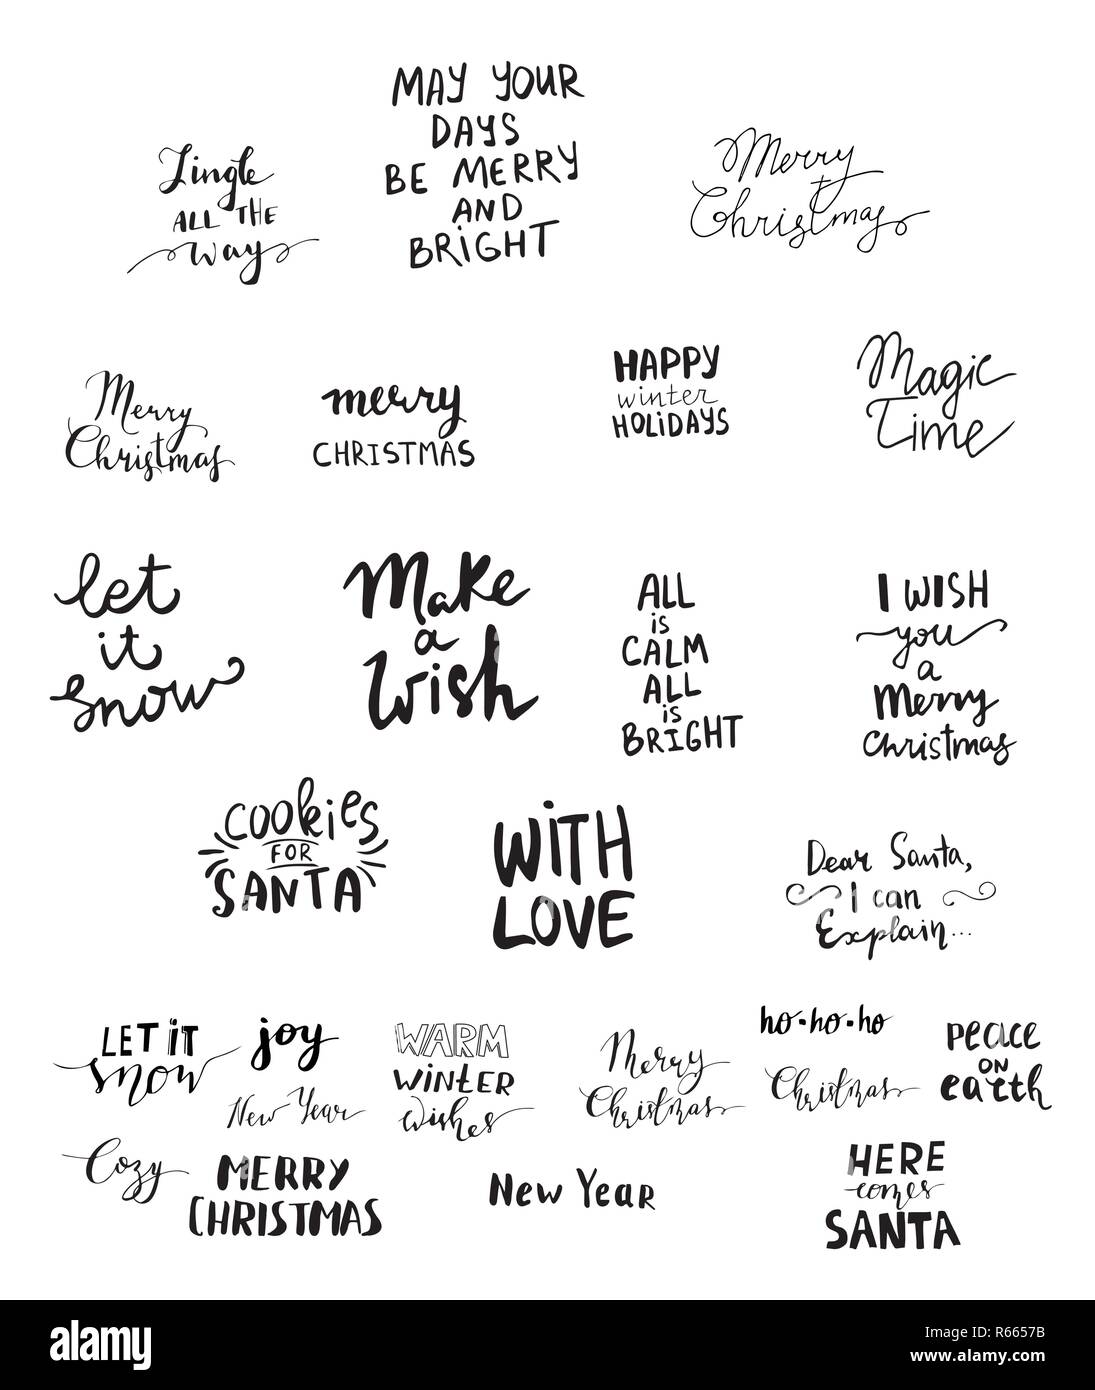 Jingle
ALL THE
way
MAY YOUR
DAYS
BE MERRY
AND
BRiGHT
Merry
Christmas
Merry
Christmas
merry
CHRISTMAS
HAPPY
winter
HOLiDAYS
Magic
Time
let
it
snow
Make
a
Wish
ALL
is
CALM
ALL
is
BRIGHT
I WISH
you
a
Merry
Christmas
COOKiES
FOR
SANTA
WiTH
LOVE
Dear Santa,
I can
Explain...
LET iT
snow
joy
New Year
WARM
WiNTER
wishes
Merry
Christmas
ho-ho-ho
Christmas
PEACE
ON
earth
Cozy
MERRY
CHRISTMAS
New Year
HERE
comes
SANTA
alamy
Image ID: R6657B
www.alamy.com